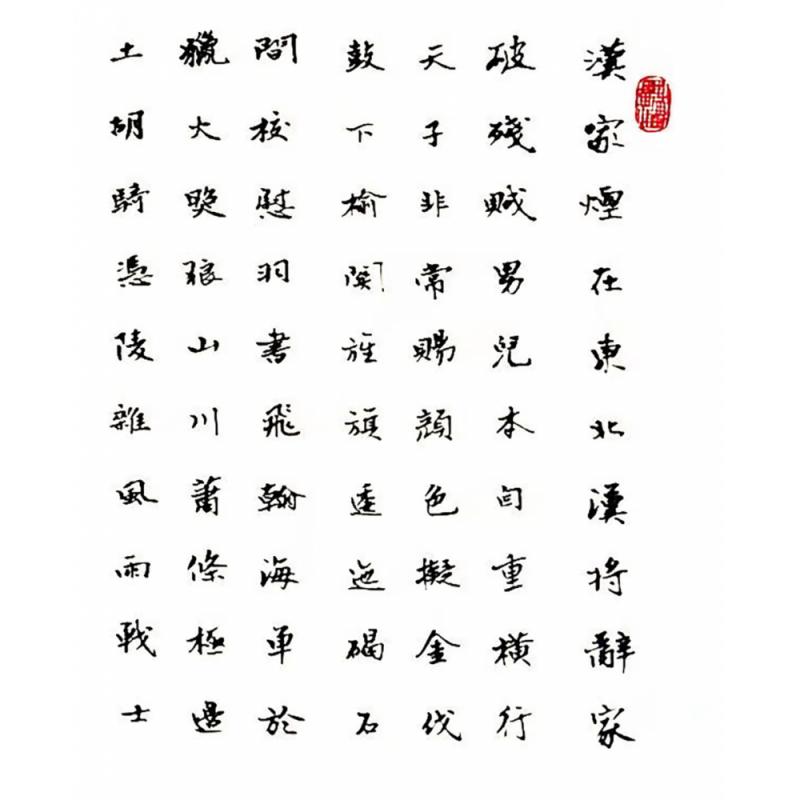 漢家煙在東北漢將辭家
破殘賊男兒本自重橫行
天子非常賜顏色擬金伐
鼓下榆關旌旗逶迤碣石
間校慰羽書飛翰海單於
獵火晚狼山川蕭條極邊
土胡騎憑陵雜風雨戰士